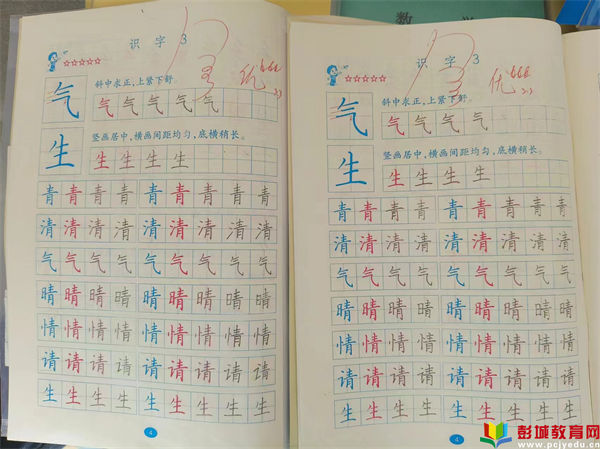 数 学
识 字 3
气
斜中求正，上紧下舒。
气 气 气 气 气
生
竖画居中，横画间距均匀，底横稍长。
生 生 生 生 生
青 青 青 青 青 青 青 青
清 清 清 清 清 清 清 清
气 气 气 气 气 气 气 气
晴 晴 晴 晴 晴 晴 晴 晴
情 情 情 情 情 情 情 情
请 请 请 请 请 请 请 请
生 生 生 生 生 生 生 生
4
优
识 字 3
气
斜中求正，上紧下舒。
气 气 气 气
生
竖画居中，横画间距均匀，底横稍长。
生 生 生 生
青 青 青 青 青 青 青 青
清 清 清 清 清 清 清 清
气 气 气 气 气 气 气 气
晴 晴 晴 晴 晴 晴 晴 晴
情 情 情 情 情 情 情 情
请 请 请 请 请 请 请 请
生 生 生 生 生 生 生 生
4
优
彭城教育网
www.pcjyedu.cn